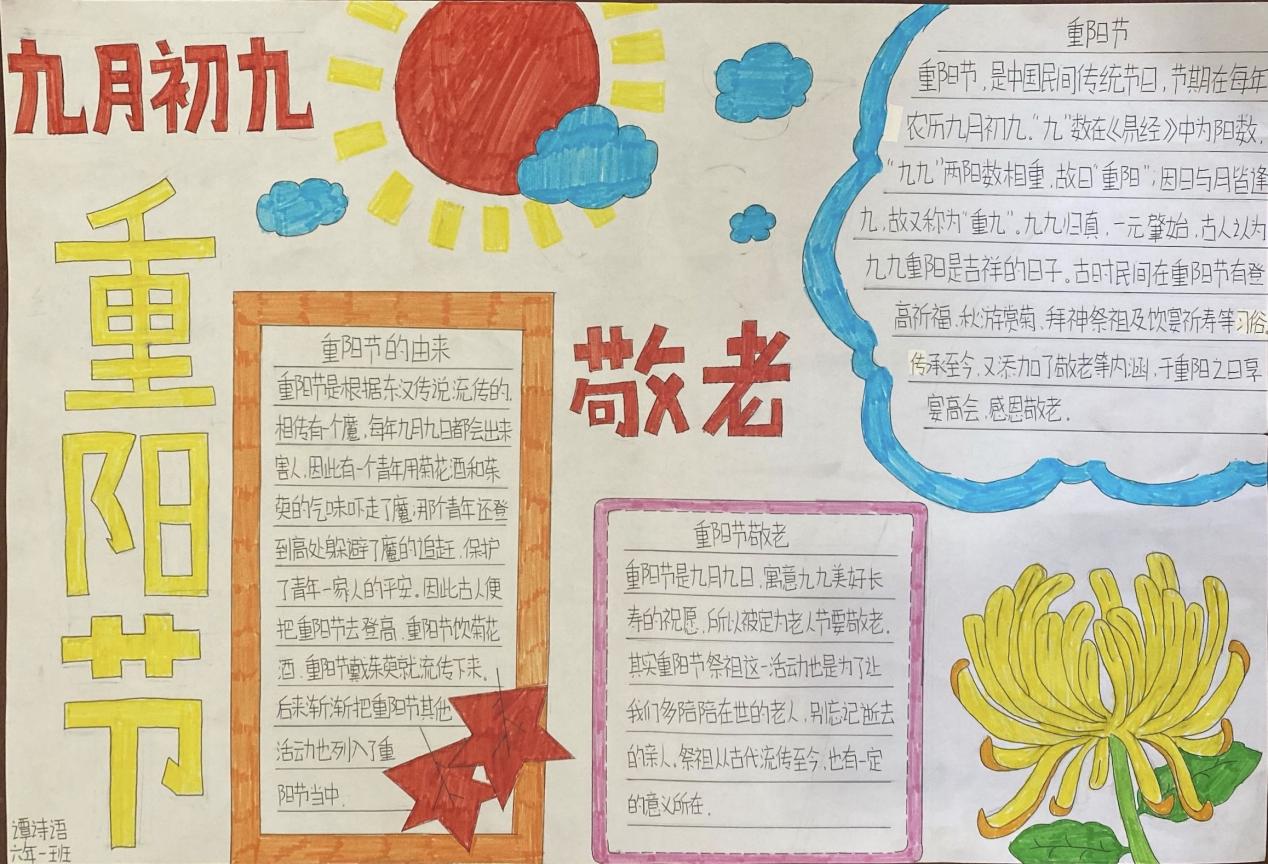 九月初九
重阳节
敬老
重阳节
重阳节，是中国民间传统节日，节期在每年
农历九月初九。“九”数在《易经》中为阳数，
“九九”两阳数相重，故曰“重阳”；因日与月皆逢
九，故又称为“重九”。九九归真，一元肇始，古人认为
九九重阳是吉祥的日子。古时民间在重阳节有登
高祈福、秋游赏菊、拜神祭祖及饮宴祈寿等习俗。
传承至今，又添加了敬老等内涵，于重阳之日享
宴高会，感恩敬老。
重阳节的由来
重阳节是根据东汉传说流传的，
相传有个魔，每年九月九日都会出来
害人，因此有一个青年用菊花酒和茱
萸的气味吓走了魔；那个青年还登
到高处躲避了魔的追赶，保护
了青年一家人的平安。因此古人便
把重阳节去登高，重阳节饮菊花
酒，重阳节戴茱萸就流传下来。
后来渐渐把重阳节其他
活动也列入了重
阳节当中。
重阳节敬老
重阳节是九月九日，寓意九九美好长
寿的祝愿，所以被定为老人节要敬老。
其实重阳节祭祖这一活动也是为了让
我们多陪陪在世的老人，别忘记逝去
的亲人，祭祖从古代流传至今，也有一定
的意义所在。
谭诗语
六年一班